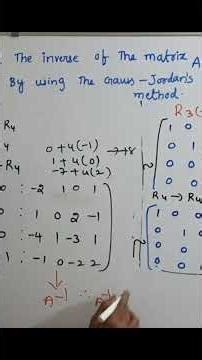 The inverse of The matrix A
By using The Gauss-Jordan's
method.
R4
R3(-
0+4(-1) → +8
1+4(0)
-7+4(2)
-R4
1 0
0 0
0 0
R4 → R4
0 : -2 1 0 1
0 : 1 0 2 -1
0 : -4 1 -3 1
1 : -1 0 -2 2
1 0
0 1
0 0
0 0
A⁻¹ ∴ A⁻¹